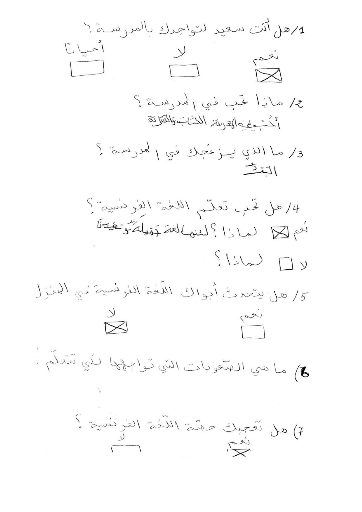 1/ هل أنت سعيد لتواجدك بالمدرسة ؟
نعم لا أحيانا
2/ ماذا تحب في المدرسة ؟
3/ ما الذي يزعجك في المدرسة ؟
4/ هل تحب تعلم اللغة الفرنسية ؟
نعم لماذا ؟ لغة جميلة
لا لماذا ؟
5/ هل يتحدث أبواك اللغة الفرنسية في المنزل
نعم لا
6) ما هي الصعوبات التي تواجهها لكي تتعلم :
7) هل تعجبك حصة اللغة الفرنسية ؟
نعم لا